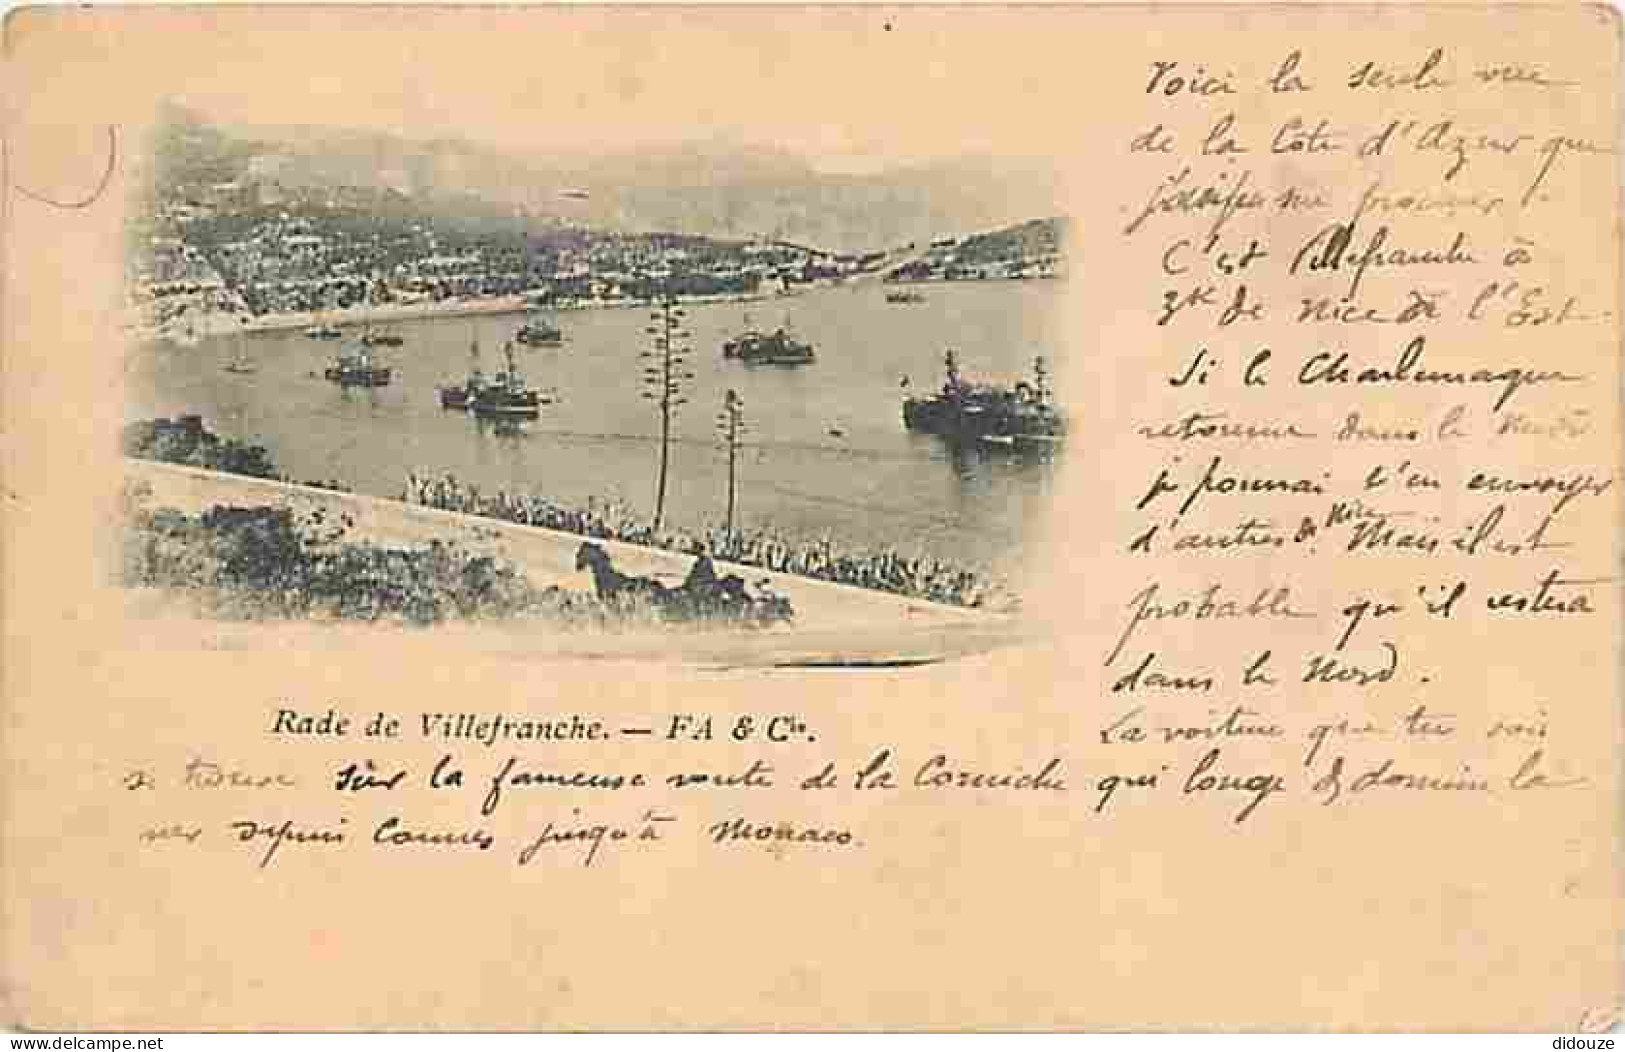 Voici la seule vue
de la Côte d'Azur que
j'ai pu me procurer.
C'est Villefranche à
3k de Nice à l'Est.
Si le Charlemagne
retourne dans le midi
je pourrai t'en envoyer
d'autres de Nice. Mais il est
probable qu'il restera
dans le Nord.
La voiture que tu vois
se trouve sur la fameuse route de la Corniche qui longe & domine la
mer depuis Cannes jusqu'à Monaco.
Rade de Villefranche. — FA & Cie.
delcampe.net
didouze